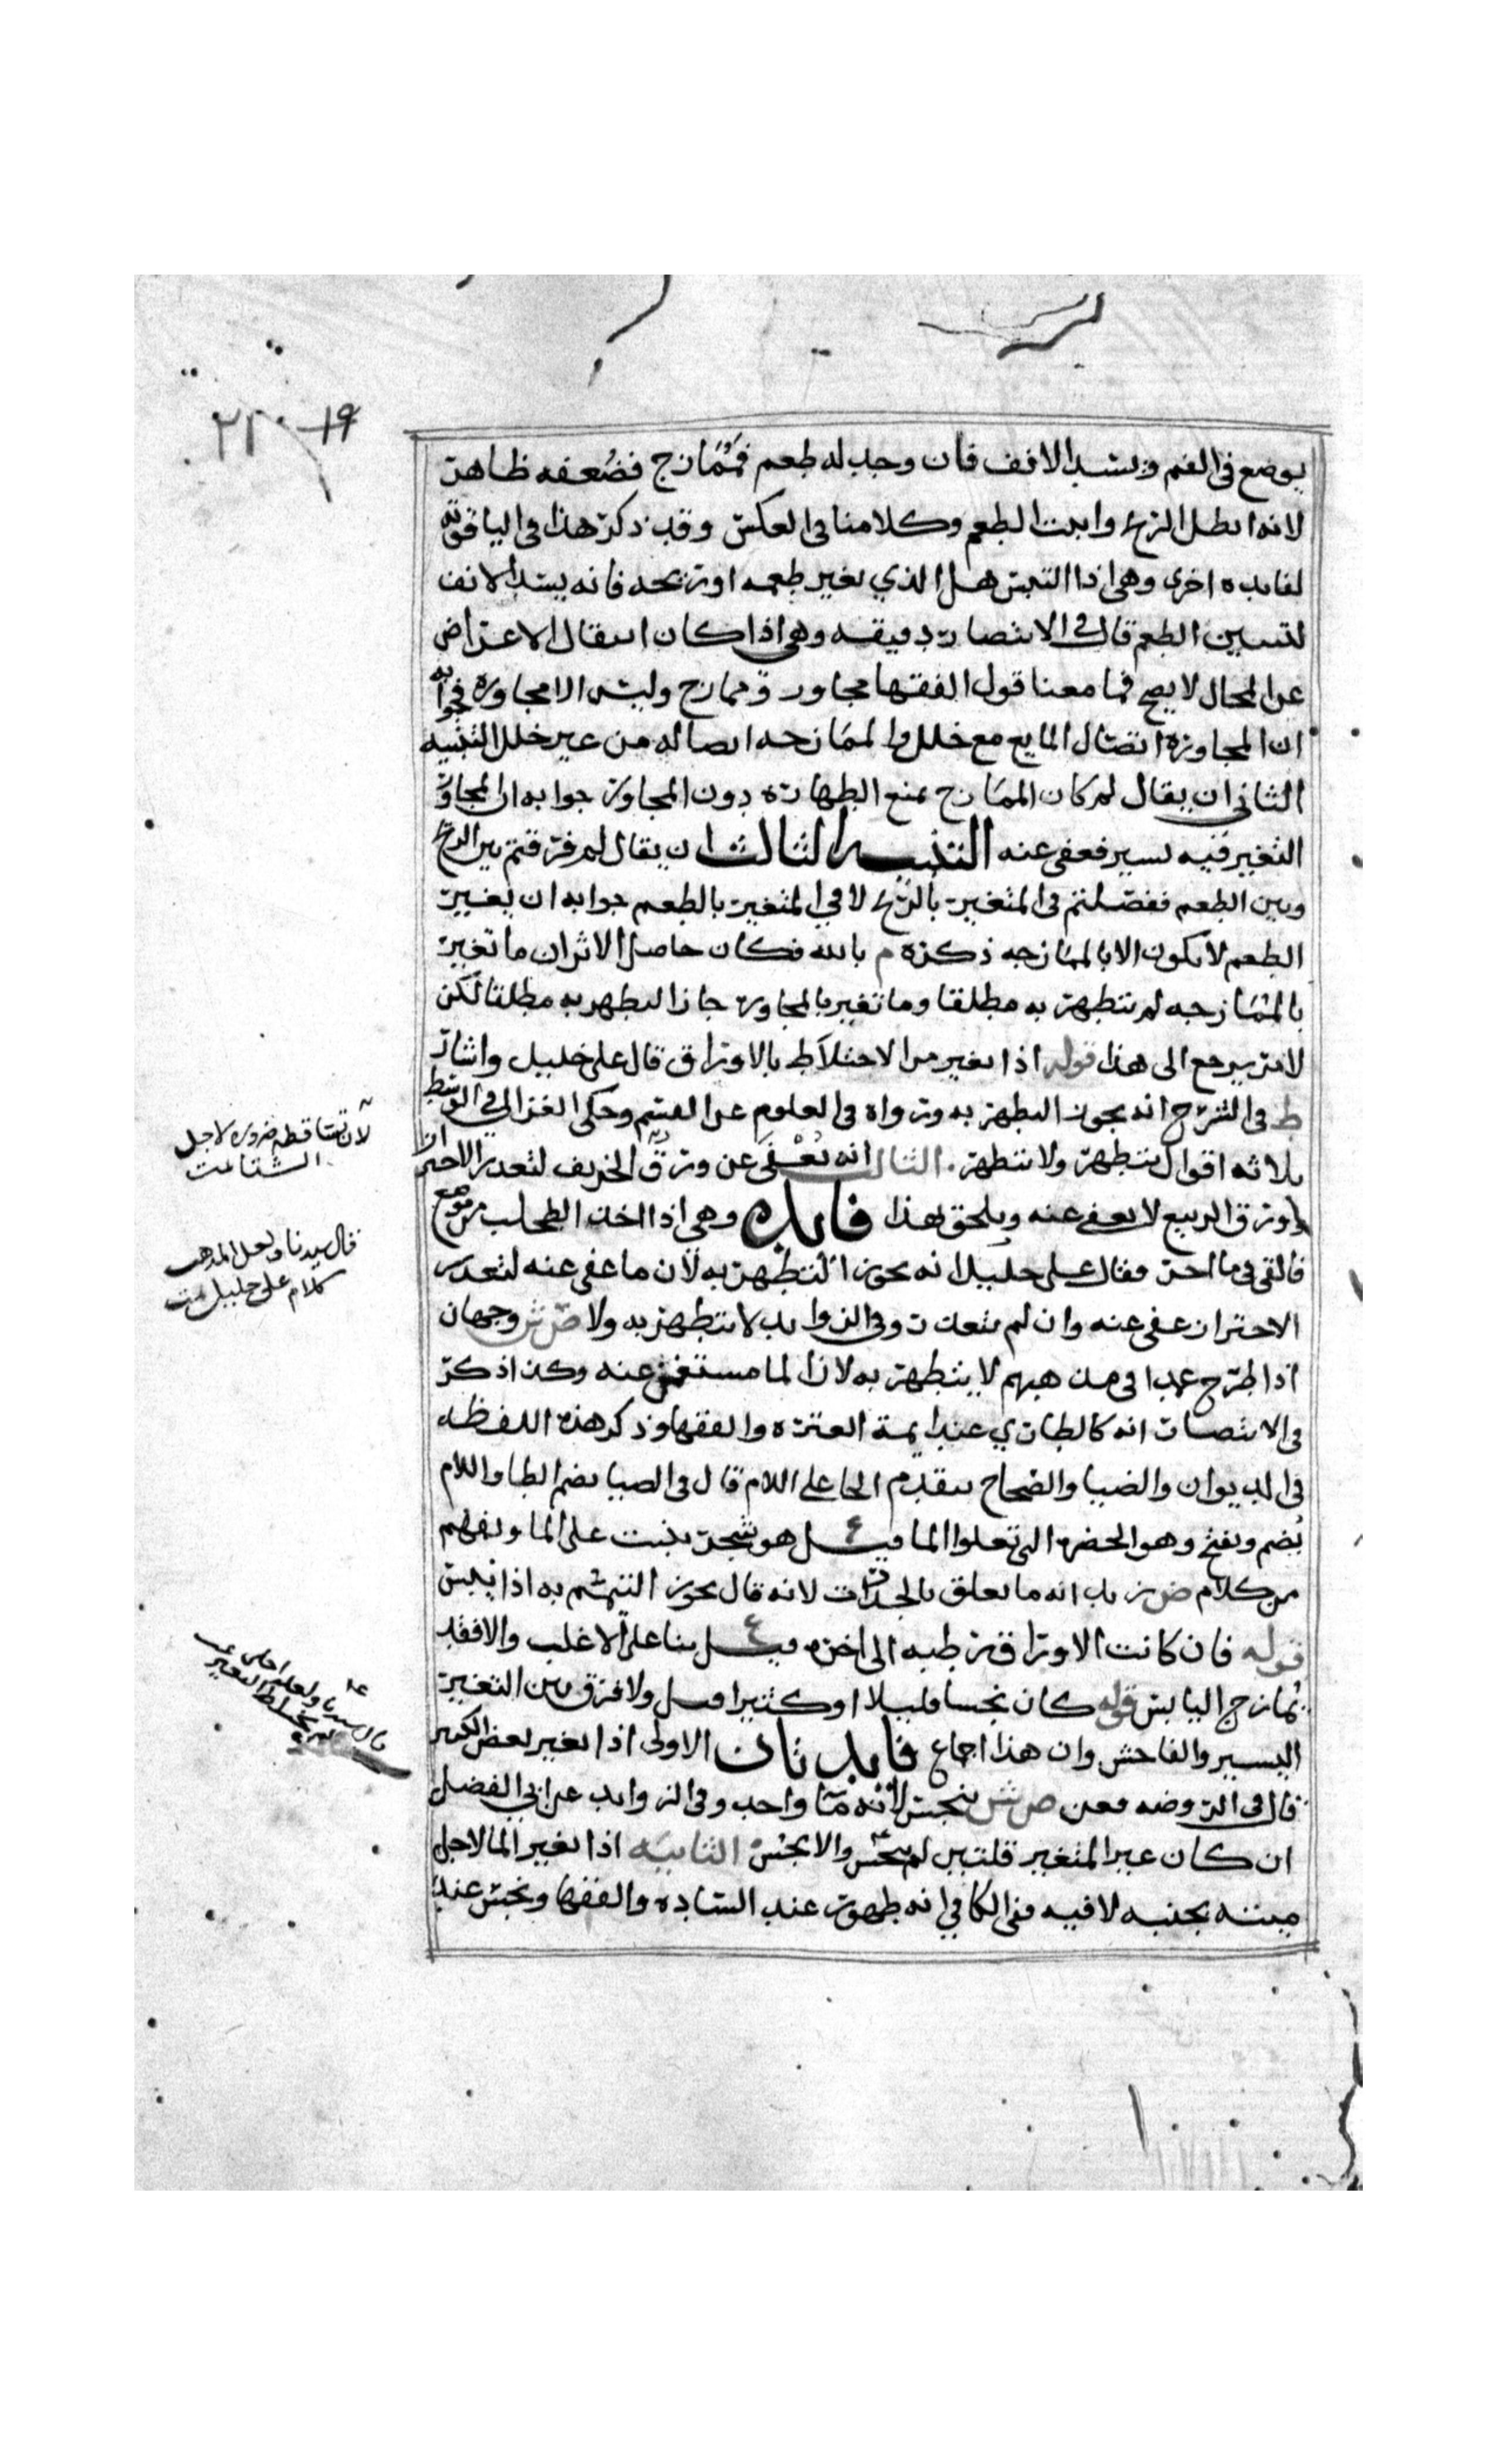 ١٩ ٢١٠
يوضع في الفم ويسد الانف فان وجد له طعم فممازج فضعفه ظاهر
لانه ابطل الريح واثبت الطعم وكلامنا في العكس وقد ذكر هذا في الياقوته
لفايده اخرى وهي اذا التبس هل الذي تغير طعمه او ريحه فانه يسد الانف
لتبيين الطعم قال في الانتصار دقيقه وهي اذا كان انتقال الاعراض
عن المحال لا يصح فما معنا قول الفقها مجاور وممازج وليس الا مجاوره فجوابه
ان المجاورة اتصال المايع مع خلل والممازجه اتصاله من غير خلل التنبيه
الثاني ان يقال لم كان الممازج يمنع الطهاره دون المجاور جوابه ان المجاور
التغير فيه يسير فعفى عنه التنبيه الثالث ان يقال لم فرقتم بين الريح
وبين الطعم ففصلتم في المتغير بالريح لا في المتغير بالطعم جوابه ان تغيير
الطعم لا يكون الا بالممازجه ذكره م بالله فكان حاصل الاثر ان ما تغير
بالممازجه لم يتطهر به مطلقا وما تغير بالمجاوره جاز التطهر به مطلقا لكن
لا نر يرجع الى هذا قوله اذا تغير من الاختلاط بالاوراق قال علي خليل واشار
ط في الشرح انه يجوز التطهر به ورواه في العلوم عن القسم وحكى الغزالي في الوسيط
ثلاثه اقوال يتطهر ولا يتطهر الثالث انه يعفى عن ورق الخريف لتعذر الاحتراز
وورق الربيع لا يعفى عنه ويلحق بهذا فايده وهي اذا اخذ الطحلب من موضع
فالقي في ما اخر فقال علي خليل انه يجوز التطهر به لان ما عفي عنه لتعذر
الاحتراز عفى عنه وان لم يتعذر وفي الزوايد لا يتطهر به ولا ص ش وجهان
اذا طرح عمدا في مذهبهم لا يتطهر به لان الما مستغن عنه وكذا ذكر
في الانتصار انه كالطاري عند ايمة العتره والفقها وذكر هذه اللفظه
في الديوان والضيا والصحاح بتقديم الحا على اللام قال في الضيا بضم الطا واللام
يضم ويفتح وهو الخضره التي تعلوا الما قيل ع هو شجر ينبت على الما ويفهم
من كلام ض زيد انه ما يعلق بالجدرات لانه قال يجوز التيمم به اذا يبس
قوله فان كانت الاوراق رطبه الى اخره قيل ع بنا على الاغلب والا فقد
يمازج اليابس قوله كان نجسا قليلا او كثيرا قيل ولا فرق بين التغير
اليسير والفاحش وان هذا اجماع فايدتان الاولى اذا تغير بعض الكثير
قال في الروضه فعن ص ش ينجس لانه ما واحد وفي الزوايد عن ابي الفضل
ان كان غير المتغير قلتين لم ينجس والا نجس الثانيه اذا تغير الما لاجل
ميتته بجنبه لا فيه ففي الكافي انه طهور عند الساده والفقها ونجس عند
لان تساقطه ضروره لاجل
الشتا تمت
قال سيدنا ولعل المذهب
كلام علي خليل تمت